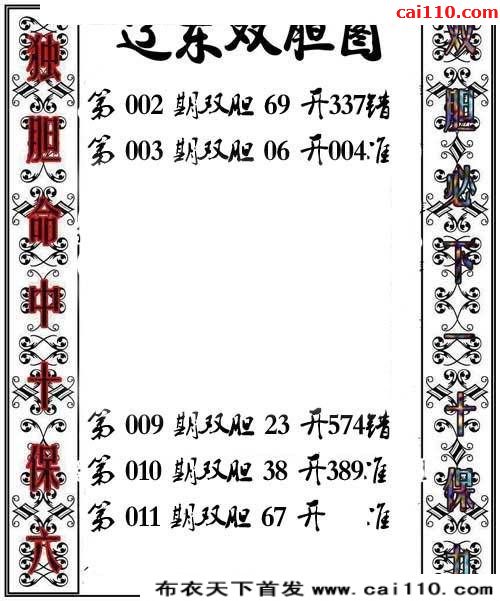 cai110.com
辽东双胆图
独胆命中十保六
第 002 期双胆 69 开337错
第 003 期双胆 06 开004准
第 009 期双胆 23 开574错
第 010 期双胆 38 开389准
第 011 期双胆 67 开 准
双胆必下一十保九
布衣天下首发 www.cai110.com